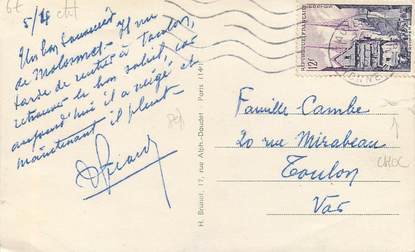 5/4
Un bon souvenir
de Malaomet. Il me
tarde de rentrer à Toulon,
retrouver le bon soleil, car
aujourd'hui il a neigé et
maintenant il pleut
Famille Cambe
20 rue Mirabeau
Toulon
Var
H. Brunot, 17, rue Alph.-Daudet - Paris (14e)
12F
CHOC